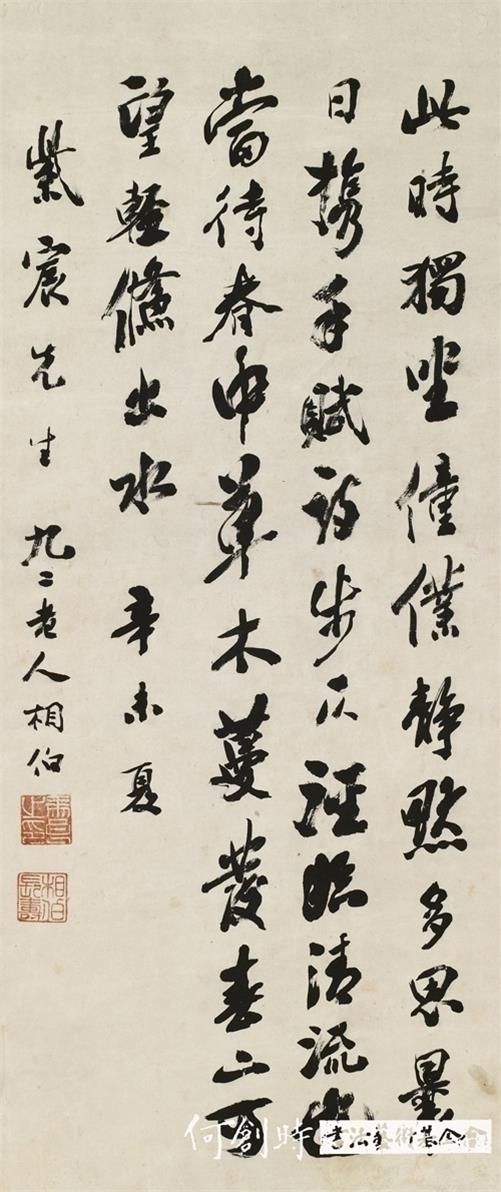 此時獨坐僮僕靜默多思曩
日携手賦詩步仄逕臨清流也
當待春中草木蔓發春山可
望輕鯈出水 辛未夏
紫宸先生 九二老人相伯
相伯長壽
何創時書法藝術基金